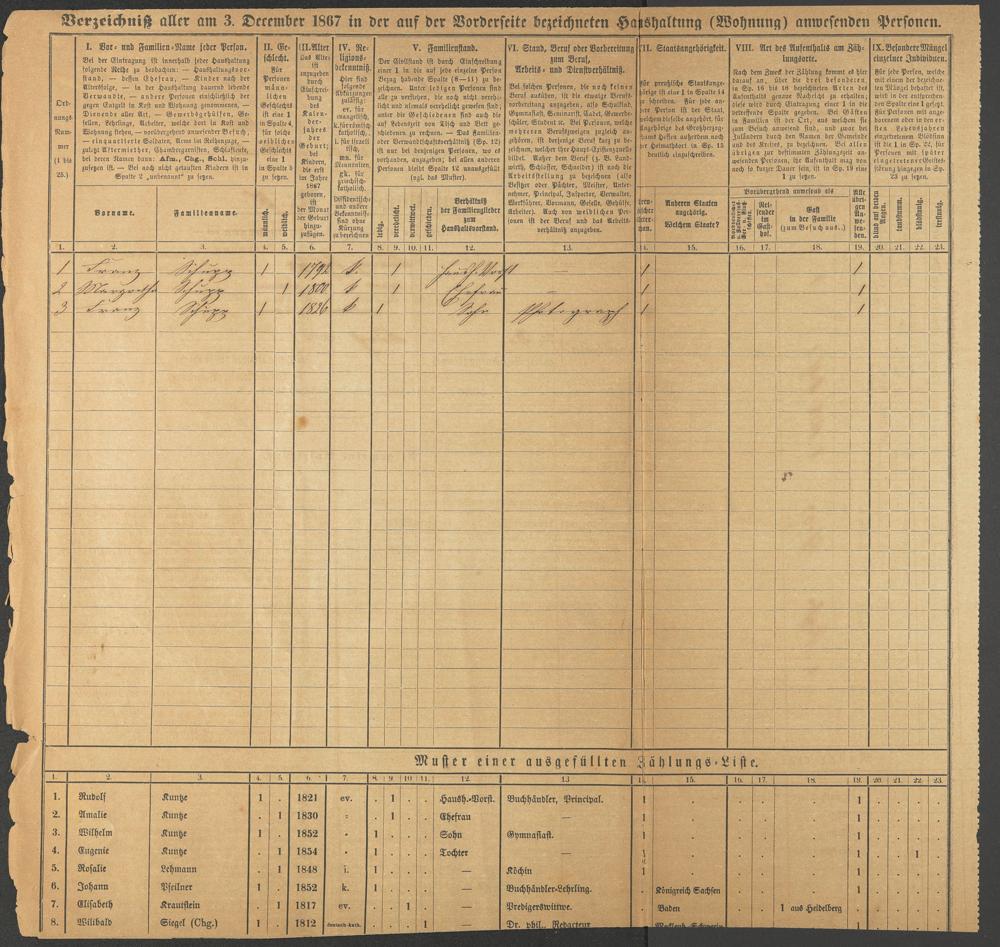 Verzeichniß aller am 3. December 1867 in der auf der Vorderseite bezeichneten Haushaltung (Wohnung) anwesenden Personen.
Ord-
nungs-
Num-
mer
(1 bis
25.)
I. Vor- und Familien-Name jeder Person.
Bei der Eintragung ist innerhalb jeder Haushaltung
folgende Reihe zu beobachten: — Haushaltungsvor-
stand, — dessen Ehefrau, — Kinder nach der
Altersfolge, — in der Haushaltung dauernd lebende
Verwandte, — andere Personen einschließlich der
gegen Entgelt in Kost und Wohnung genommenen, —
Dienende aller Art, — Gewerbsgehülfen, Ge-
sellen, Lehrlinge, Arbeiter, welche dort in Kost und
Wohnung stehen, — vorübergehend anwesender Besuch,
— einquartierte Soldaten, Arme im Reihenzuge, —
zuletzt Aftermiether, Chambregarnisten, Schlafleute,
bei deren Namen dann: Afm., Chg., Schl. hinzu-
zusetzen ist. — Bei noch nicht getauften Kindern ist in
Spalte 2 „unbenannt" zu setzen.
Vorname. Familienname.
II. Ge-
schlecht.
Für
Personen
männ-
lichen
Geschlechts
ist eine 1
in Spalte 4,
für solche
weiblichen
Geschlechts
eine 1
in Spalte 5
zu setzen.
männlich. weiblich.
III. Alter
Das Alter
ist
anzugeben
durch
Einschrei-
bung
des
Kalen-
der-
jahres
der
Geburt;
bei
Kindern,
die erst
im Jahre
1867
geboren,
ist
der Monat
der Geburt
hinzu-
zufügen.
IV. Re-
ligions-
bekenntniß.
Hier sind
folgende
Abkürzungen
zulässig:
ev. für
evangelisch,
k. für römisch-
katholisch,
i. für israeli-
tisch,
mn. für
Mennoniten,
gk. für
griechisch-
katholisch.
Dissidentische
und andere
Bekenntnisse
sind ohne
Kürzung
zu bezeichnen
V. Familienstand.
Der Civilstand ist durch Einschreibung
einer 1 in die auf jede einzelne Person
Bezug habende Spalte (8—11) zu be-
zeichnen. Unter ledigen Personen sind
alle zu verstehen, die noch nicht verehe-
licht und niemals verehelicht gewesen sind;
unter die Geschiedenen sind auch die
auf Lebenszeit von Tisch und Bett ge-
schiedenen zu rechnen. — Das Familien-
oder Verwandtschaftsverhältniß (Sp. 12)
ist nur bei denjenigen Personen, wo es
vorhanden, anzugeben; bei allen anderen
Personen bleibt Spalte 12 unausgefüllt
(vgl. das Muster).
ledig. verehelicht. verwittwet. geschieden.
Verhältniß
der Familienglieder
zum
Haushaltsvorstand.
VI. Stand, Beruf oder Vorbereitung
zum Beruf,
Arbeits- und Dienstverhältniß.
Bei solchen Personen, die noch keinen
Beruf ausüben, ist die etwaige Berufs-
vorbereitung anzugeben, also Schulkind,
Gymnasiast, Seminarist, Cadet, Gewerbe-
schüler, Student 2c. Bei Personen, welche
mehreren Berufszweigen zugleich an-
gehören, ist derjenige Beruf kurz zu be-
zeichnen, welcher ihre Haupt-Existenzquelle
bildet. Außer dem Beruf (z. B. Land-
wirth, Schlosser, Schneider) ist noch die
Arbeitsstellung zu bezeichnen (also
Besitzer oder Pächter, Meister, Unter-
nehmer, Principal, Inspector, Verwalter,
Werkführer, Vormann, Geselle, Gehülfe,
Arbeiter). Auch von weiblichen Per-
sonen ist der Beruf und das Arbeits-
verhältniß anzugeben.
VII. Staatsangehörigkeit.
Für preußische Staatsange-
hörige ist eine 1 in Spalte 14
zu schreiben. Für jede an-
dere Person ist der Staat,
welchem dieselbe angehört, für
Angehörige des Großherzog-
thums Hessen außerdem noch
der Heimathort in Sp. 15
deutlich einzuschreiben.
Anderen Staaten
angehörig.
Welchem Staate?
VIII. Art des Aufenthalts am Zäh-
lungsorte.
Nach dem Zweck der Zählung kommt es hier
darauf an, über die drei besonderen,
in Sp. 16 bis 18 bezeichneten Arten des
Aufenthalts genaue Nachricht zu erhalten;
diese wird durch Eintragung einer 1 in die
betreffende Spalte gegeben. Bei Gästen
in Familien ist der Ort, aus welchem sie
zum Besuch anwesend sind, und zwar bei
Inländern durch den Namen der Gemeinde
und des Kreises, zu bezeichnen. Bei allen
übrigen zur bestimmten Zählungszeit an-
wesenden Personen, ihr Aufenthalt mag von
noch so kurzer Dauer sein, ist in Sp. 19 eine
1 zu setzen.
Vorübergehend anwesend als
Rei-
sender
im
Gast-
hof.
Gast
in der Familie
(zum Besuch aus..)
Alle
übri-
gen
An-
wesen-
den.
IX. Besondere Mängel
einzelner Individuen.
Für jede Person, welche
mit einem der bezeichne-
ten Mängel behaftet ist,
wird in der entsprechen-
den Spalte eine 1 gesetzt.
Für Personen mit ange-
borenem oder in den er-
sten Lebensjahren
eingetretenem Blödsinn
ist die 1 in Sp. 22, für
Personen mit später
eingetretener Geistes-
störung hingegen in Sp.
23 zu setzen.
blind auf beiden Augen. taubstumm. blödsinnig. irrsinnig.
1. 2. 3. 4. 5. 6. 7. 8. 9. 10. 11. 12. 13. 14. 15. 16. 17. 18. 19. 20. 21. 22. 23.
1 Franz Schupp 1 1792 k. 1 Haush.-Vorst — 1 1
2 Margaretha Schupp 1 1800 k 1 Ehefrau — 1 1
3 Franz Schupp 1 1826 k 1 Sohn Photograph 1 1
Muster einer ausgefüllten Zählungs-Liste.
1. 2. 3. 4. 5. 6. 7. 8. 9. 10. 11. 12. 13. 14. 15. 16. 17. 18. 19. 20. 21. 22. 23.
1. Rudolf Kuntze 1 . 1821 ev. . 1 . . Haush.-Vorst. Buchhändler, Principal. 1 . . . . 1 . . . .
2. Amalie Kuntze . 1 1830 „ . 1 . . Ehefrau — 1 . . . . 1 . . . .
3. Wilhelm Kuntze 1 . 1852 „ 1 . . . Sohn Gymnasiast. 1 . . . . 1 . . . .
4. Eugenie Kuntze . 1 1854 „ 1 . . . Tochter — 1 . . . . 1 . . 1 .
5. Rosalie Lehmann . 1 1848 i. 1 . . . — Köchin 1 . . . . 1 . . . .
6. Johann Pfeilner 1 . 1852 k. 1 . . . — Buchhändler-Lehrling. . Königreich Sachsen . . . 1 . . . .
7. Elisabeth Krautstein . 1 1817 ev. . . 1 . — Predigerswittwe. . Baden . . 1 aus Heidelberg . . . . .
8. Wilibald Siegel (Chg.) 1 . 1812 deutsch-kath. . . . 1 — Dr. phil., Redacteur . Mecklenb. Schwerin . . . 1 . . . .